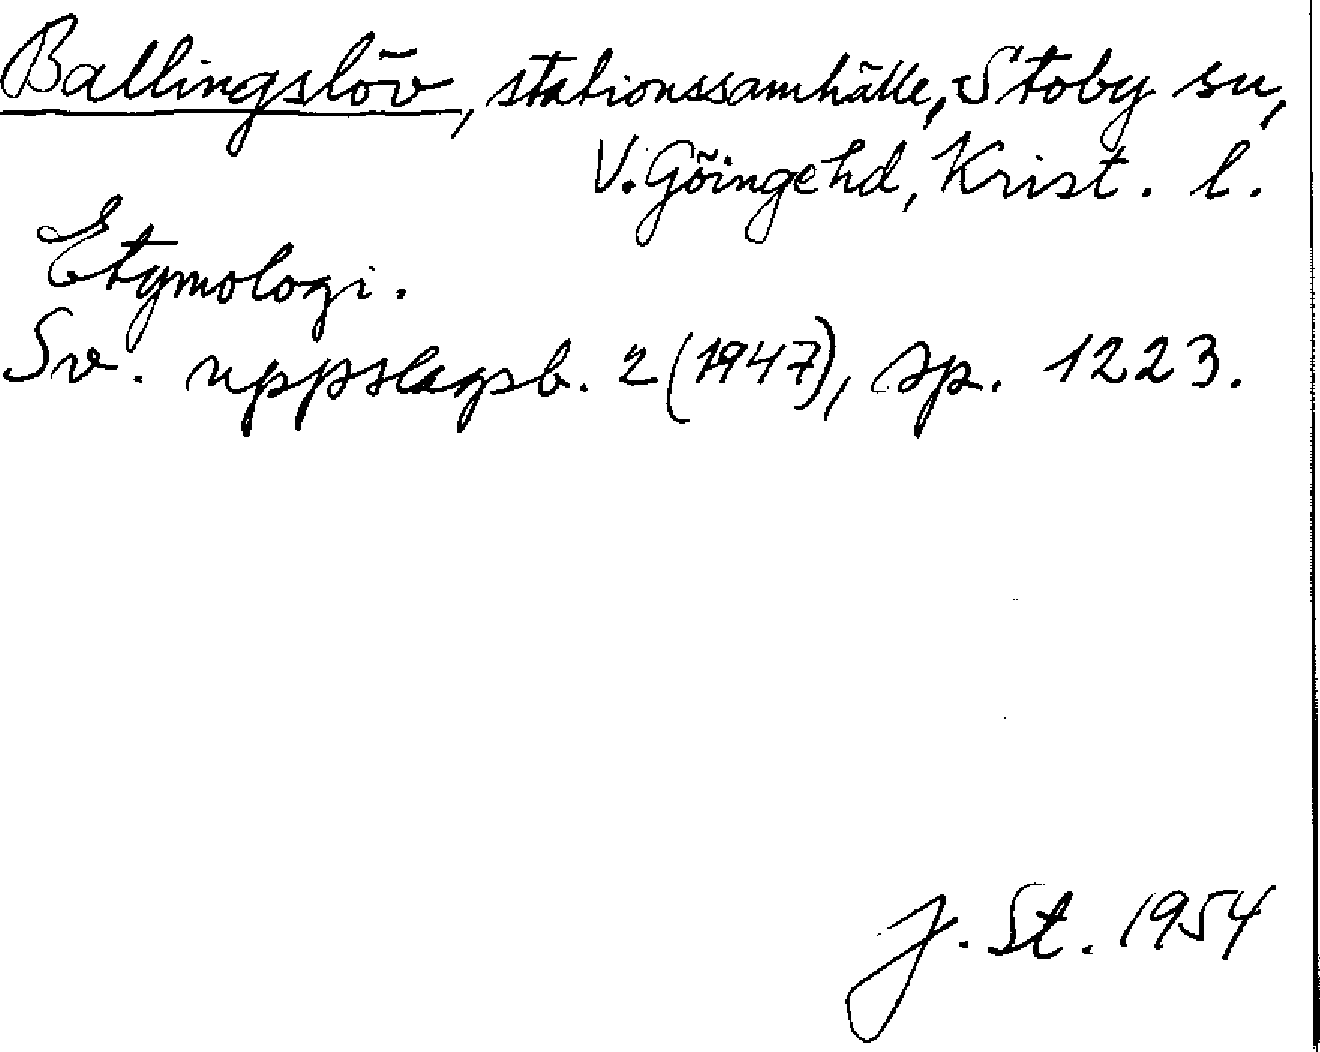 Ballingslöv, stationssamhälle, Stoby sn,
V. Göingehd, Krist. l.
Etymologi.
Sv. uppslagsb. 2 (1947), sp. 1223.
J. St. 1954